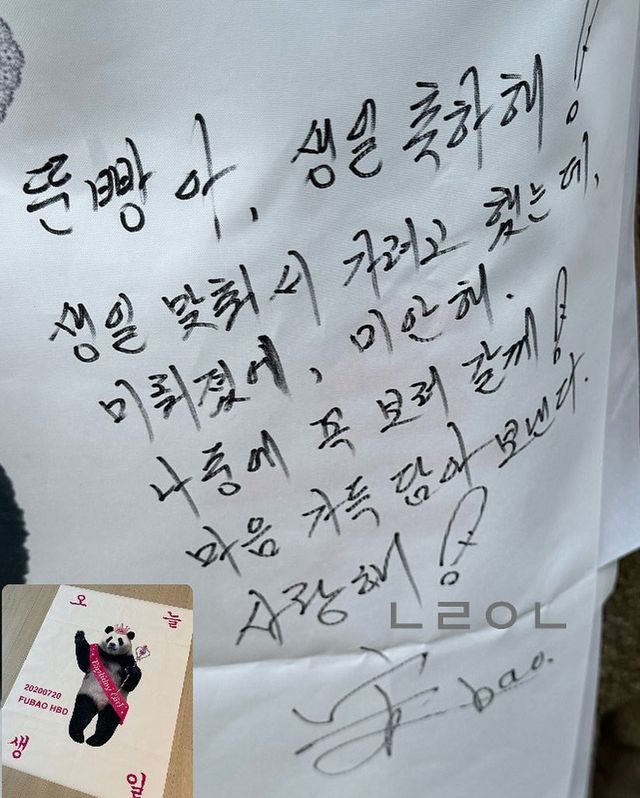 뚠빵아, 생일 축하해!
생일 맞춰서 가려고 했는데,
미뤄졌에, 미안해.
나중에 꼭 보러 갈께!
마음 가득 담아 보낸다.
사랑해!
ㄴㄹㅇㄴ
bao.
오 늘
Birthday Girl
20200720
FUBAO HBD
생 일